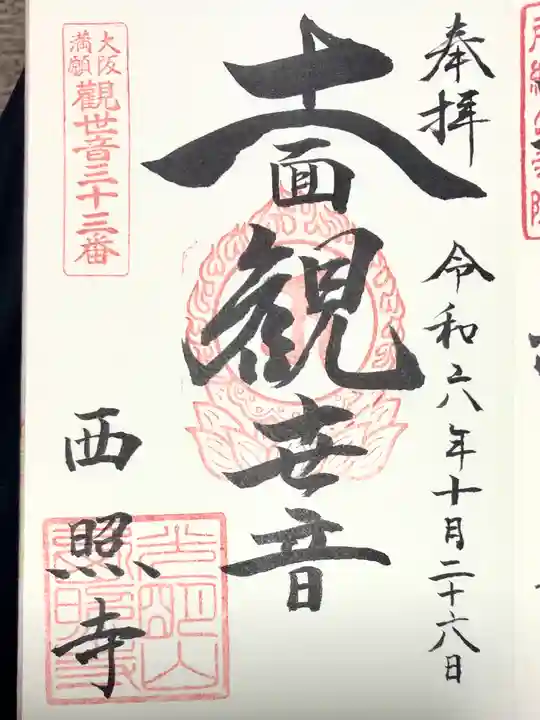 奉拝
令和六年十月二十六日
十一面觀世音
大阪
満願
觀世音三十三番
西照寺